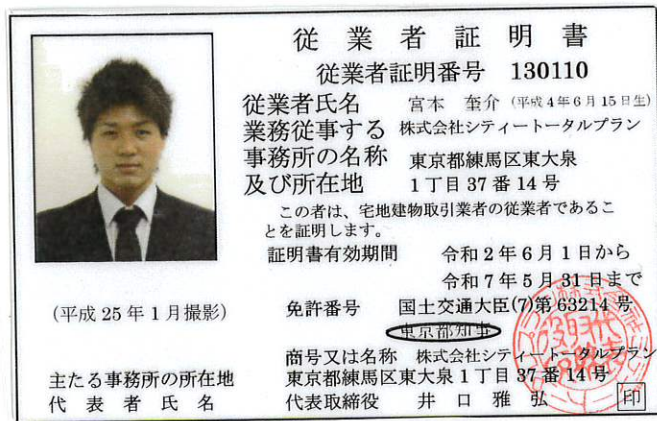 従業者証明書
従業者証明番号 130110
従業者氏名 宮本 奎介 (平成4年6月15日生)
業務従事する 株式会社シティートータルプラン
事務所の名称 東京都練馬区東大泉
及び所在地 1丁目37番14号
この者は、宅地建物取引業者の従業者であるこ
とを証明します。
証明書有効期間 令和2年6月1日から
令和7年5月31日まで
(平成25年1月撮影)
免許番号 国土交通大臣(7)第63214号
東京都知事
商号又は名称 株式会社シティートータルプラン
主たる事務所の所在地 東京都練馬区東大泉1丁目37番14号
代表者氏名 代表取締役 井口雅弘 印